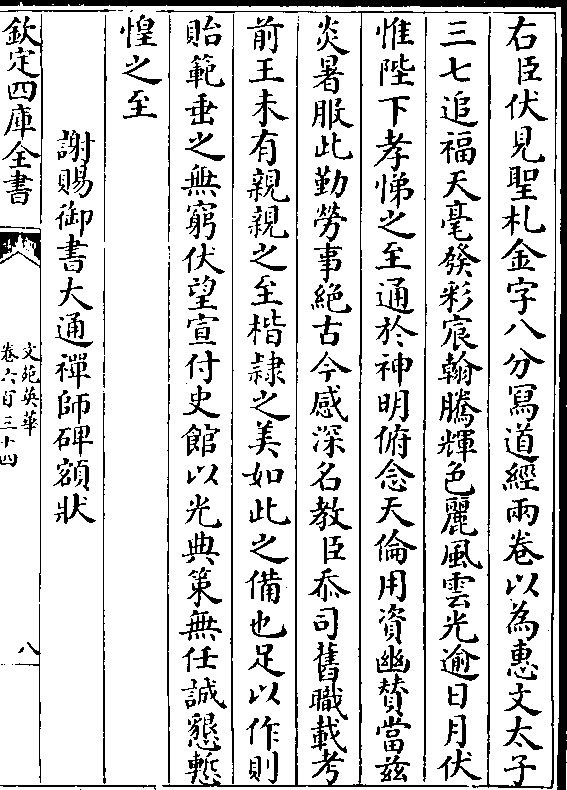 右臣伏見聖札金字八分寫道經兩卷以為惠文太子
三七追福天毫發彩宸翰騰輝色麗風雲光逾日月伏
惟陛下孝悌之至通於神明俯念天倫用資幽贊當兹
炎暑服此勤勞事絶古今感深名教臣忝司舊職載考
前王未有親親之至楷隷之美如此之備也足以作則
貽範垂之無窮伏望宣付史館以光典策無任誠懇慙
惶之至
謝賜御書大通禪師碑額狀
欽定四庫全書
文苑英華
卷六百三十四
八